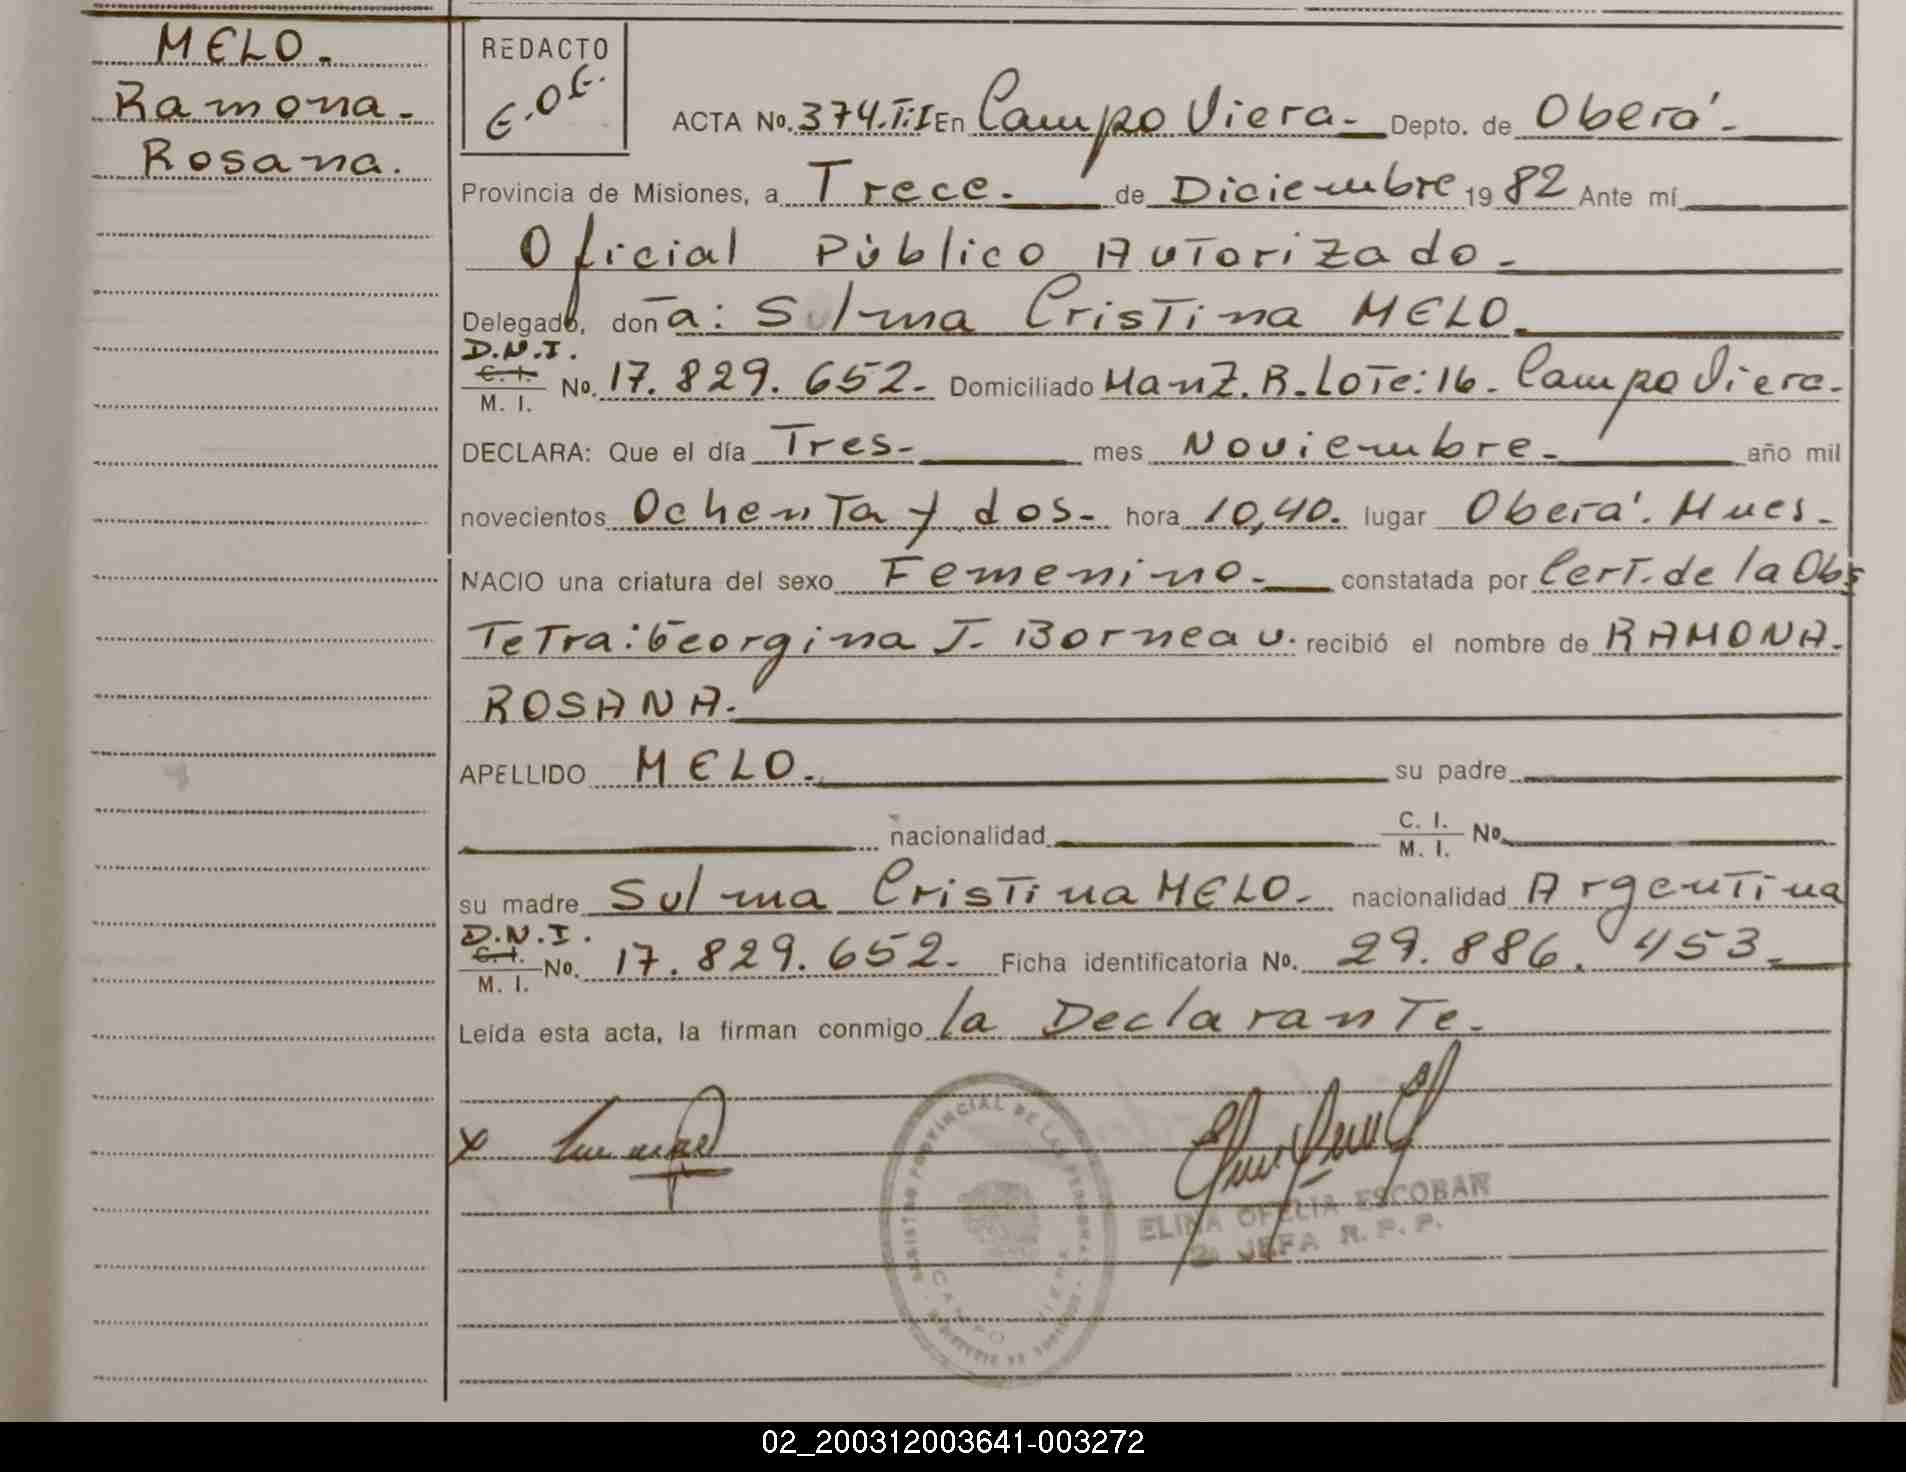 MELO.
Ramona.
Rosana.
REDACTO
E.O.E.
ACTA No. 374.T:I En Campo Viera. Depto. de Oberá.
Provincia de Misiones, a Trece. de Diciembre 19 82 Ante mí
Oficial Público Autorizado.
Delegado, don a: Sulma Cristina MELO.
D.N.I.
C. I.
M. I. No. 17.829.652. Domiciliado Manz.R.Lote:16. Campo Viera.
DECLARA: Que el día Tres. mes Noviembre. año mil
novecientos Ochenta y dos. hora 10,40. lugar Oberá. Mnes.
NACIO una criatura del sexo Femenino. constatada por Cert. de la Obs
Tetra: Georgina J. Borneau. recibió el nombre de RAMONA.
ROSANA.
APELLIDO MELO. su padre
nacionalidad C. I.
M. I. No.
su madre Sulma Cristina MELO. nacionalidad Argentina
D.N.I.
C. I.
M. I. No. 17.829.652. Ficha identificatoria No. 29.886.453.
Leída esta acta, la firman conmigo la Declarante.
x
REGISTRO PROVINCIAL DE LAS PERSONAS
CAMPO VIERA
ELINA OFELIA ESCOBAR
JEFA R. P. P.
02_200312003641-003272